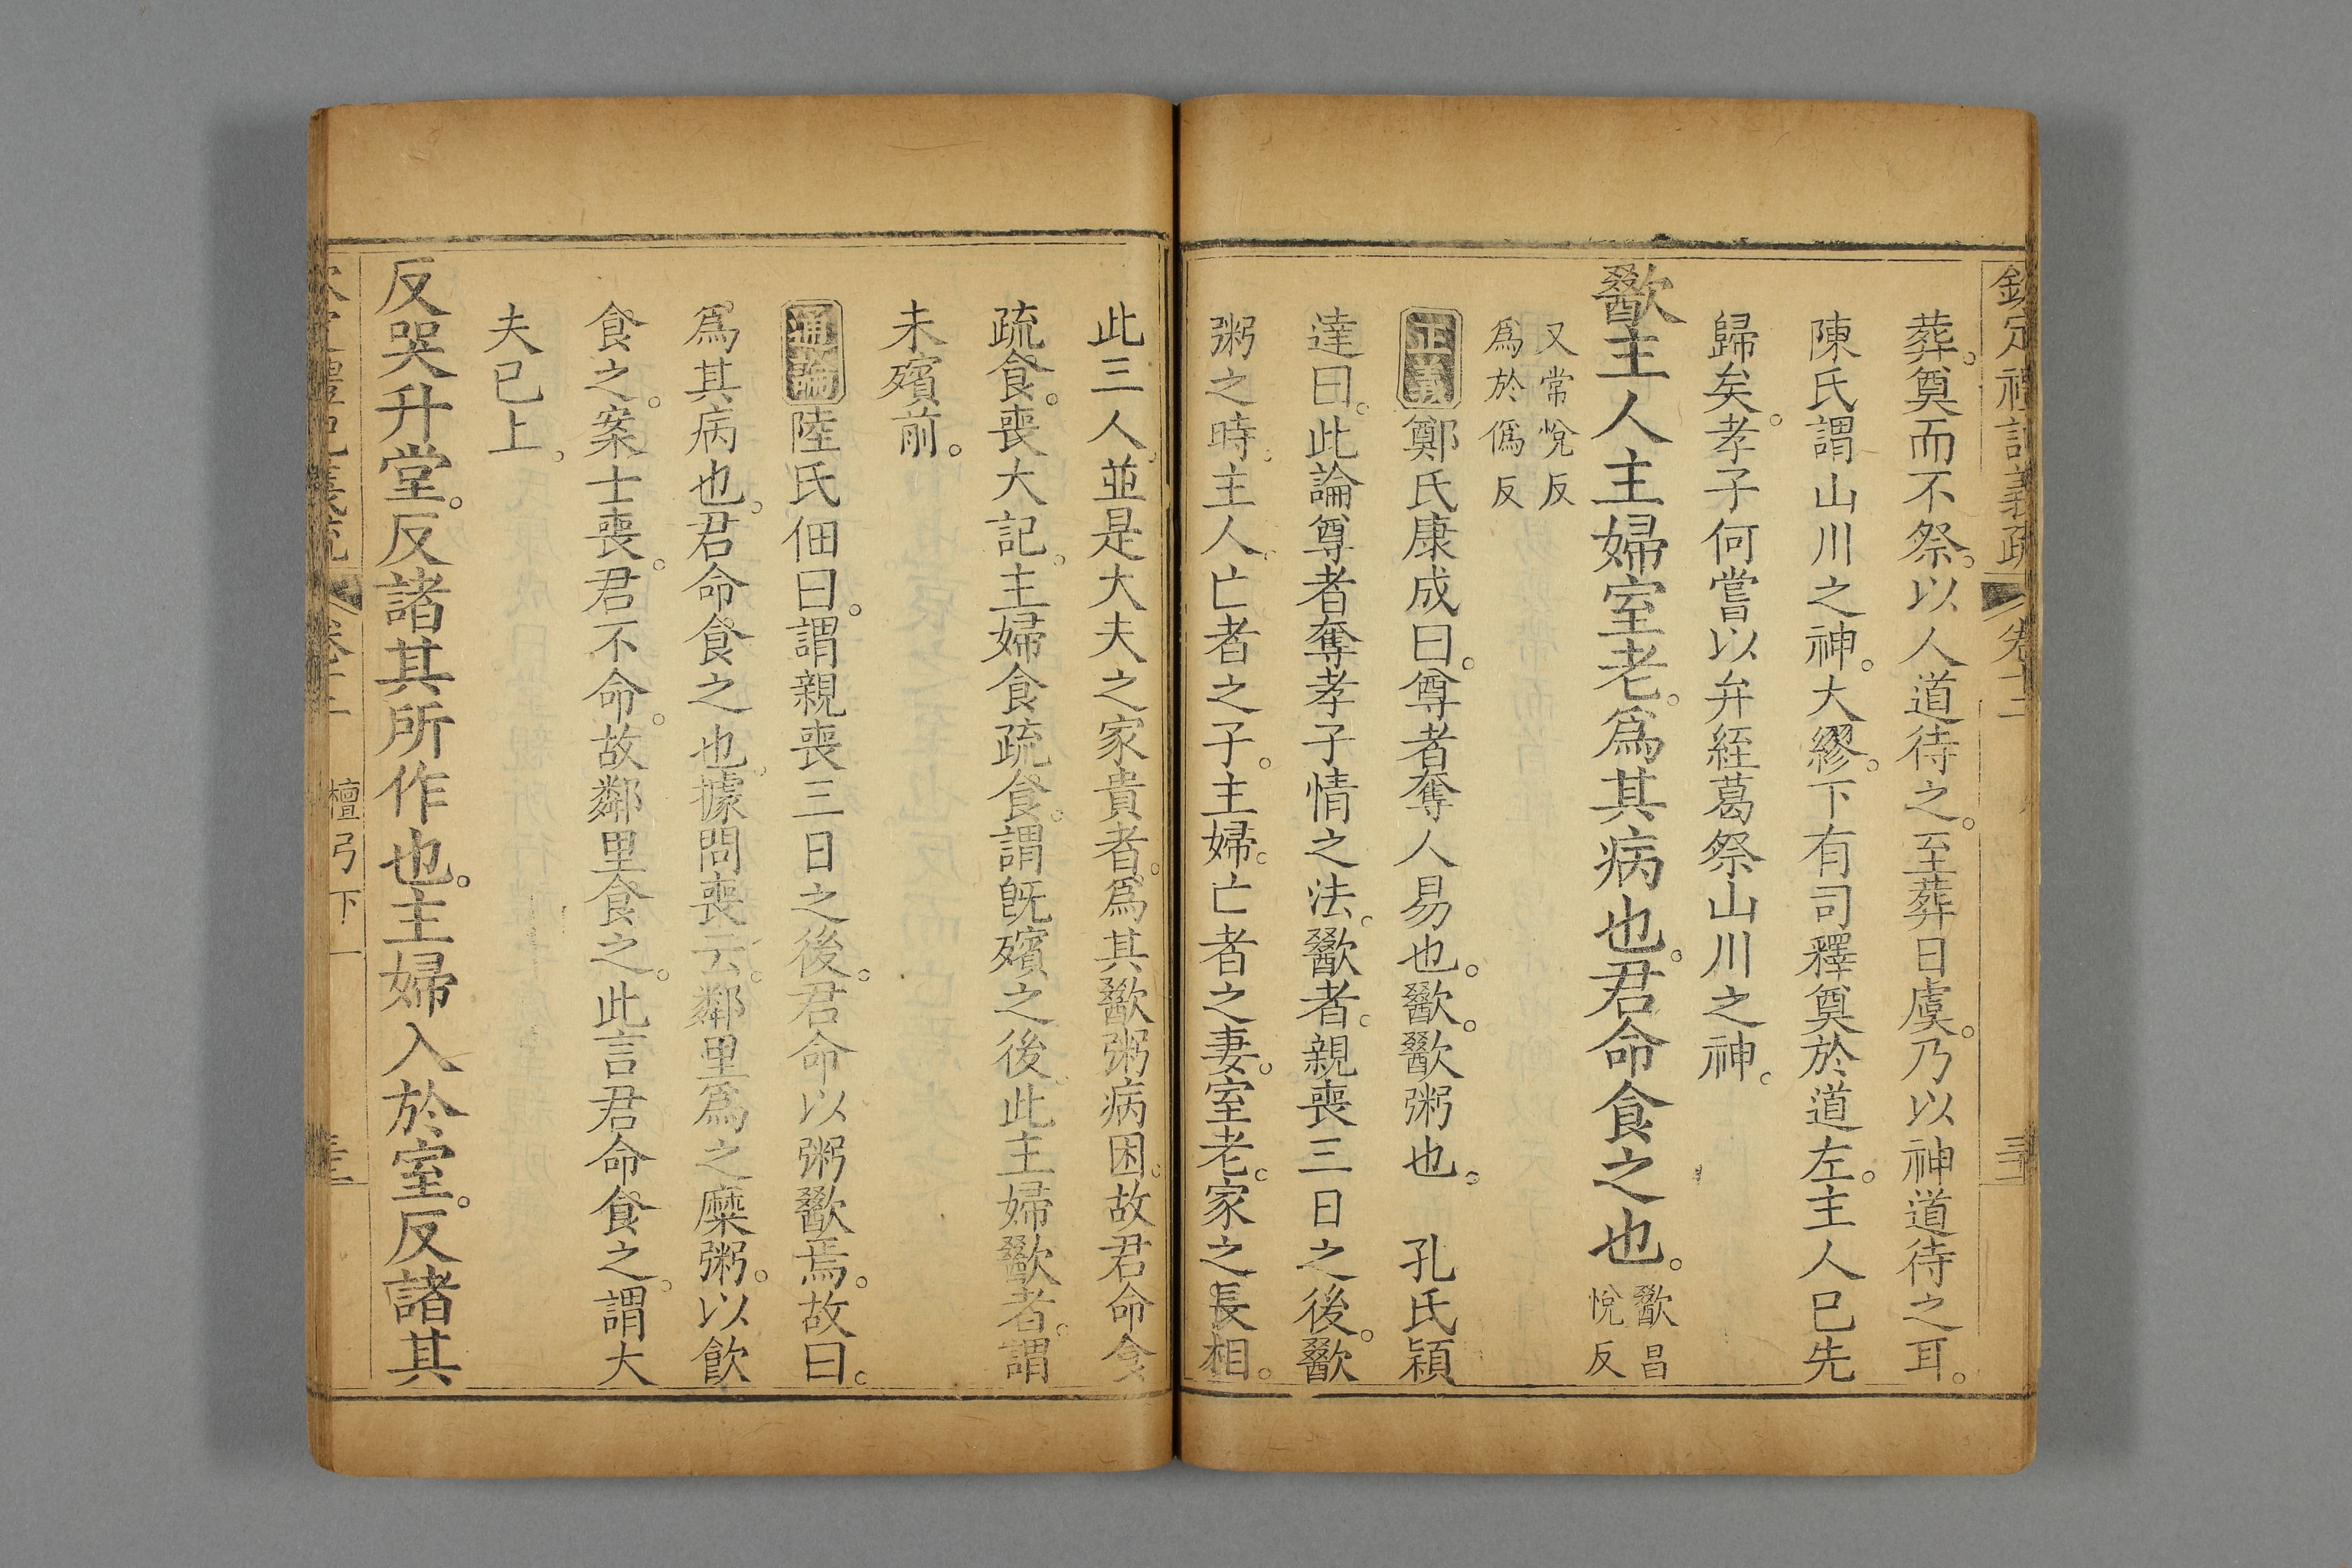 欽定禮記義疏 卷十二
葬。奠而不祭。以人道待之。至葬日虞。乃以神道待之耳。
陳氏謂山川之神。大繆。下有司釋奠於道左。主人巳先
歸矣。孝子何嘗以弁絰葛祭山川之神。
歠主人主婦室老。爲其病也。君命食之也。歠昌
悅反
又常悅反
爲於僞反
正義 鄭氏康成曰。尊者奪人易也。歠。歠粥也。 孔氏穎
達曰。此論尊者奪孝子情之法。歠者。親喪三日之後。歠
粥之時。主人。亡者之子。主婦。亡者之妻。室老。家之長相。
此三人並是大夫之家貴者。爲其歠粥病困。故君命食
疏食。喪大記。主婦食疏食。謂旣殯之後。此主婦歠者。謂
未殯前。
通論 陸氏佃曰。謂親喪三日之後。君命以粥歠焉。故曰。
爲其病也。君命食之也。據問喪云。鄰里爲之糜粥。以飮
食之。案士喪。君不命。故鄰里食之。此言君命食之。謂大
夫巳上。
反哭升堂。反諸其所作也。主婦入於室。反諸其
禮記義疏 卷十二 檀弓下